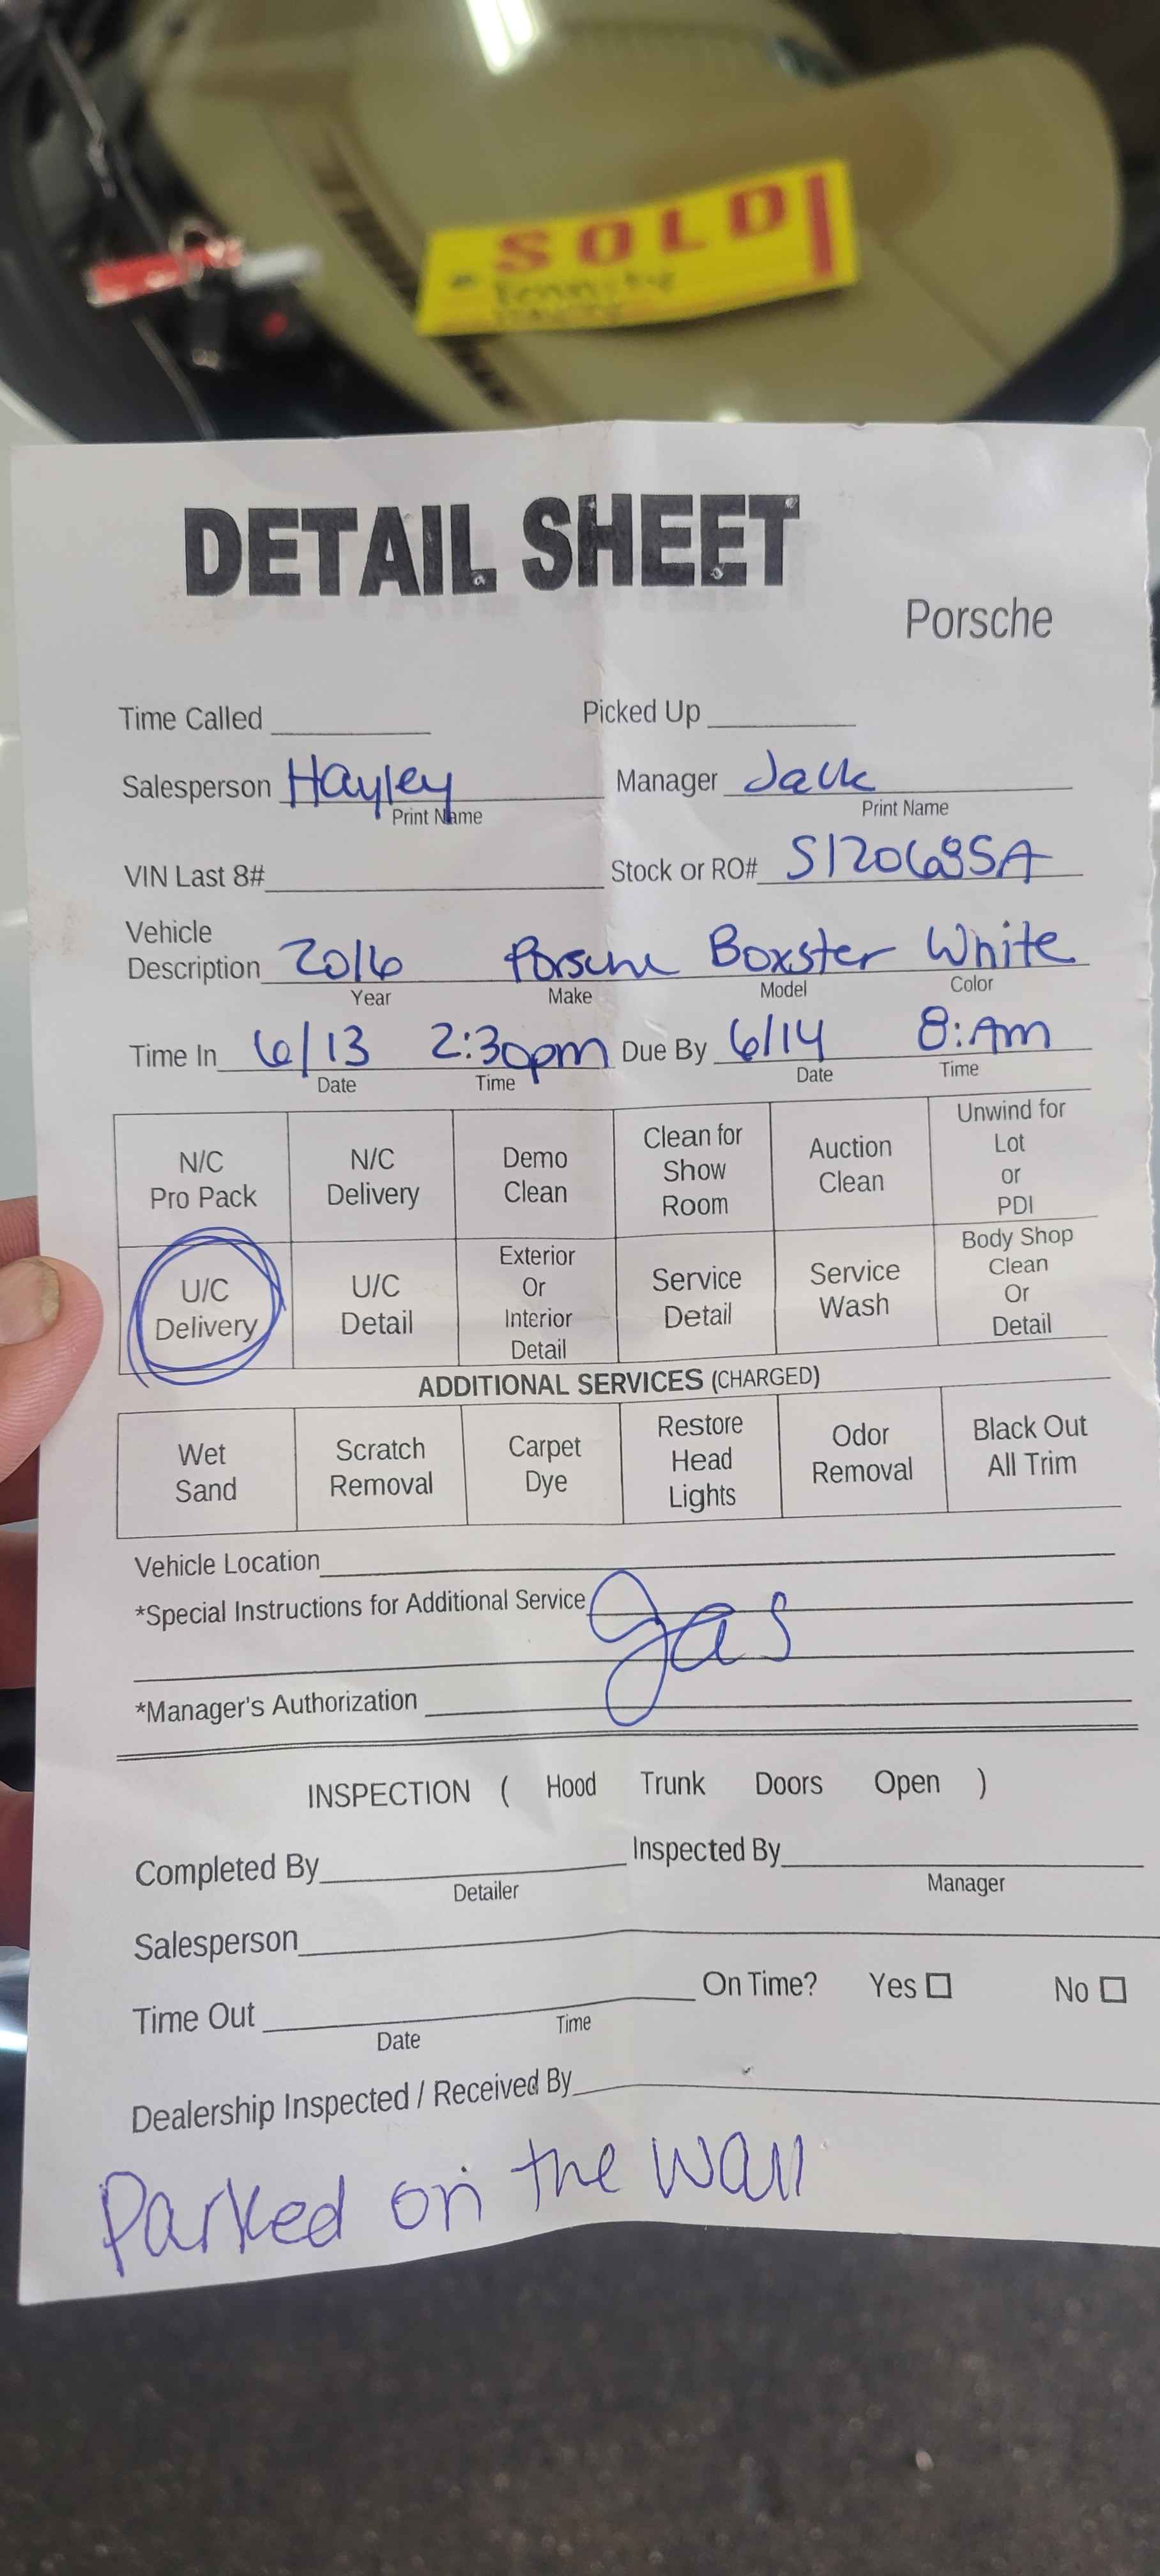 SOLD
DETAIL SHEET
Porsche
Time Called Picked Up
Salesperson Hayley Manager Jack
Print Name Print Name
VIN Last 8# Stock or RO# S120685A
Vehicle
Description 2016 Porsche Boxster White
Year Make Model Color
Time In 6/13 2:30pm Due By 6/14 8:Am
Date Time Date Time
N/C Pro Pack
N/C Delivery
Demo Clean
Clean for Show Room
Auction Clean
Unwind for Lot or PDI
U/C Delivery
U/C Detail
Exterior Or Interior Detail
Service Detail
Service Wash
Body Shop Clean Or Detail
ADDITIONAL SERVICES (CHARGED)
Wet Sand
Scratch Removal
Carpet Dye
Restore Head Lights
Odor Removal
Black Out All Trim
Vehicle Location
*Special Instructions for Additional Service gas
*Manager's Authorization
INSPECTION ( Hood Trunk Doors Open )
Completed By Inspected By
Detailer Manager
Salesperson
Time Out On Time? Yes ☐ No ☐
Date Time
Dealership Inspected / Received By
Parked on the wall